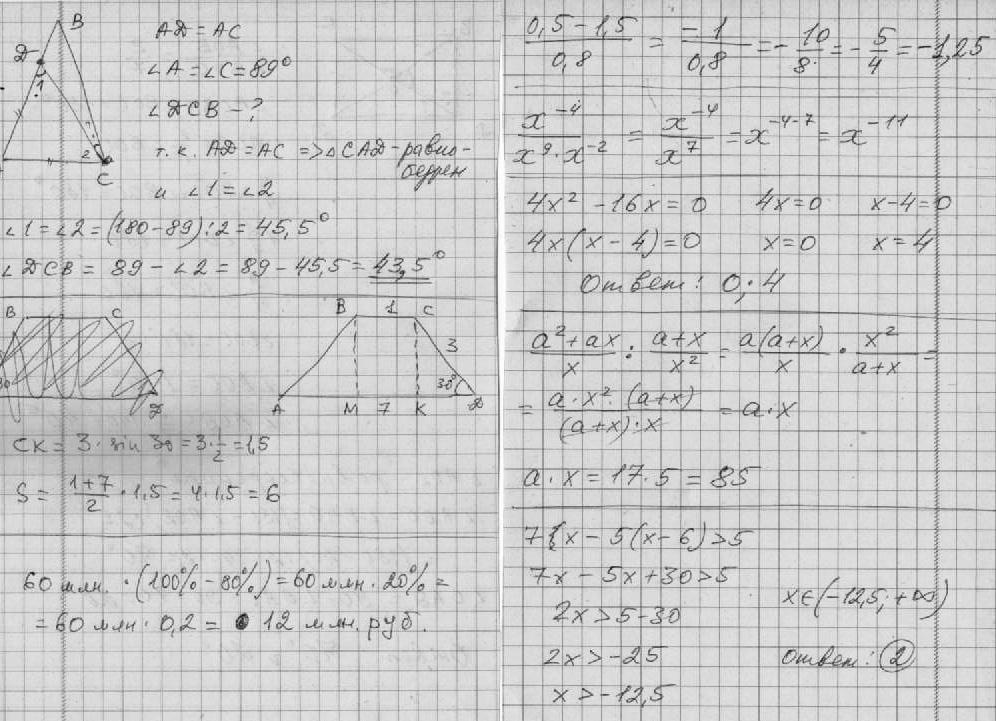 B
D
1
2
C
AD = AC
∠A = ∠C = 89°
∠DCB - ?
т.к. AD = AC => △CAD - равно-
бедрен
и ∠1 = ∠2
∠1 = ∠2 = (180 - 89) : 2 = 45,5°
∠DCB = 89 - ∠2 = 89 - 45,5 = 43,5°
B C
B 1 C
3
30°
A M 7 K D
CK = 3 · sin 30 = 3 · 1/2 = 1,5
S = (1+7)/2 · 1,5 = 4 · 1,5 = 6
60 млн. · (100% - 80%) = 60 млн · 20% =
= 60 млн · 0,2 = 12 млн. руб.
(0,5 - 1,5)/0,8 = -1/0,8 = -10/8 = -5/4 = -1,25
x⁻⁴/(x⁹ · x⁻²) = x⁻⁴/x⁷ = x⁻⁴⁻⁷ = x⁻¹¹
4x² - 16x = 0 4x = 0 x - 4 = 0
4x(x - 4) = 0 x = 0 x = 4
Ответ: 0; 4
(a² + ax)/x : (a+x)/x² = a(a+x)/x · x²/(a+x) =
= (a · x² · (a+x))/((a+x) · x) = a · x
a · x = 17 · 5 = 85
7x - 5(x - 6) > 5
7x - 5x + 30 > 5
2x > 5 - 30
2x > -25
x > -12,5
x ∈ (-12,5; +∞)
Ответ: 2